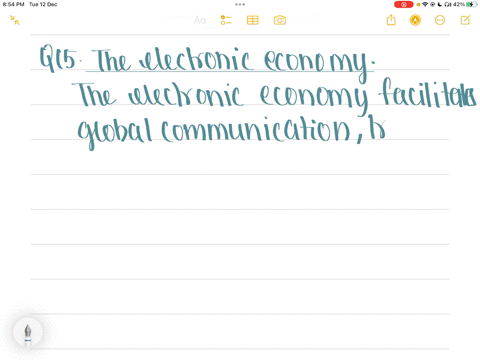 8:54 PM Tue 12 Dec
42%
Aa
Q15. The electronic economy.
The electronic economy facilitates
global communication, b